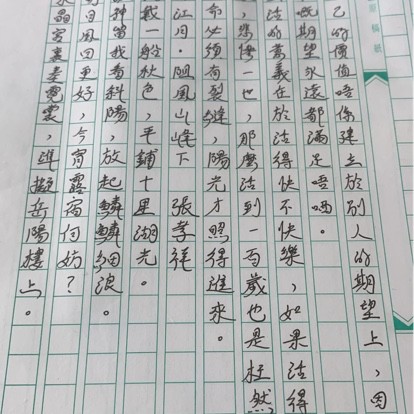 原稿紙
己的價值唔係建立於別人的期望上,因
既期望永遠都滿足唔哂。
活的意義在於活得快不快樂,如果活得
悲慘一世,那麼活到一百歲也是枉然
命必須有裂縫,陽光才照得進來。
江月·阻風山峰下 張孝祥
載一船秋色,平鋪十里湖光。
神留我看斜陽,放起鱗鱗細浪。
日風回更好,今宵露宿何妨?
晶宮裏奏霓裳,準擬岳陽樓上。